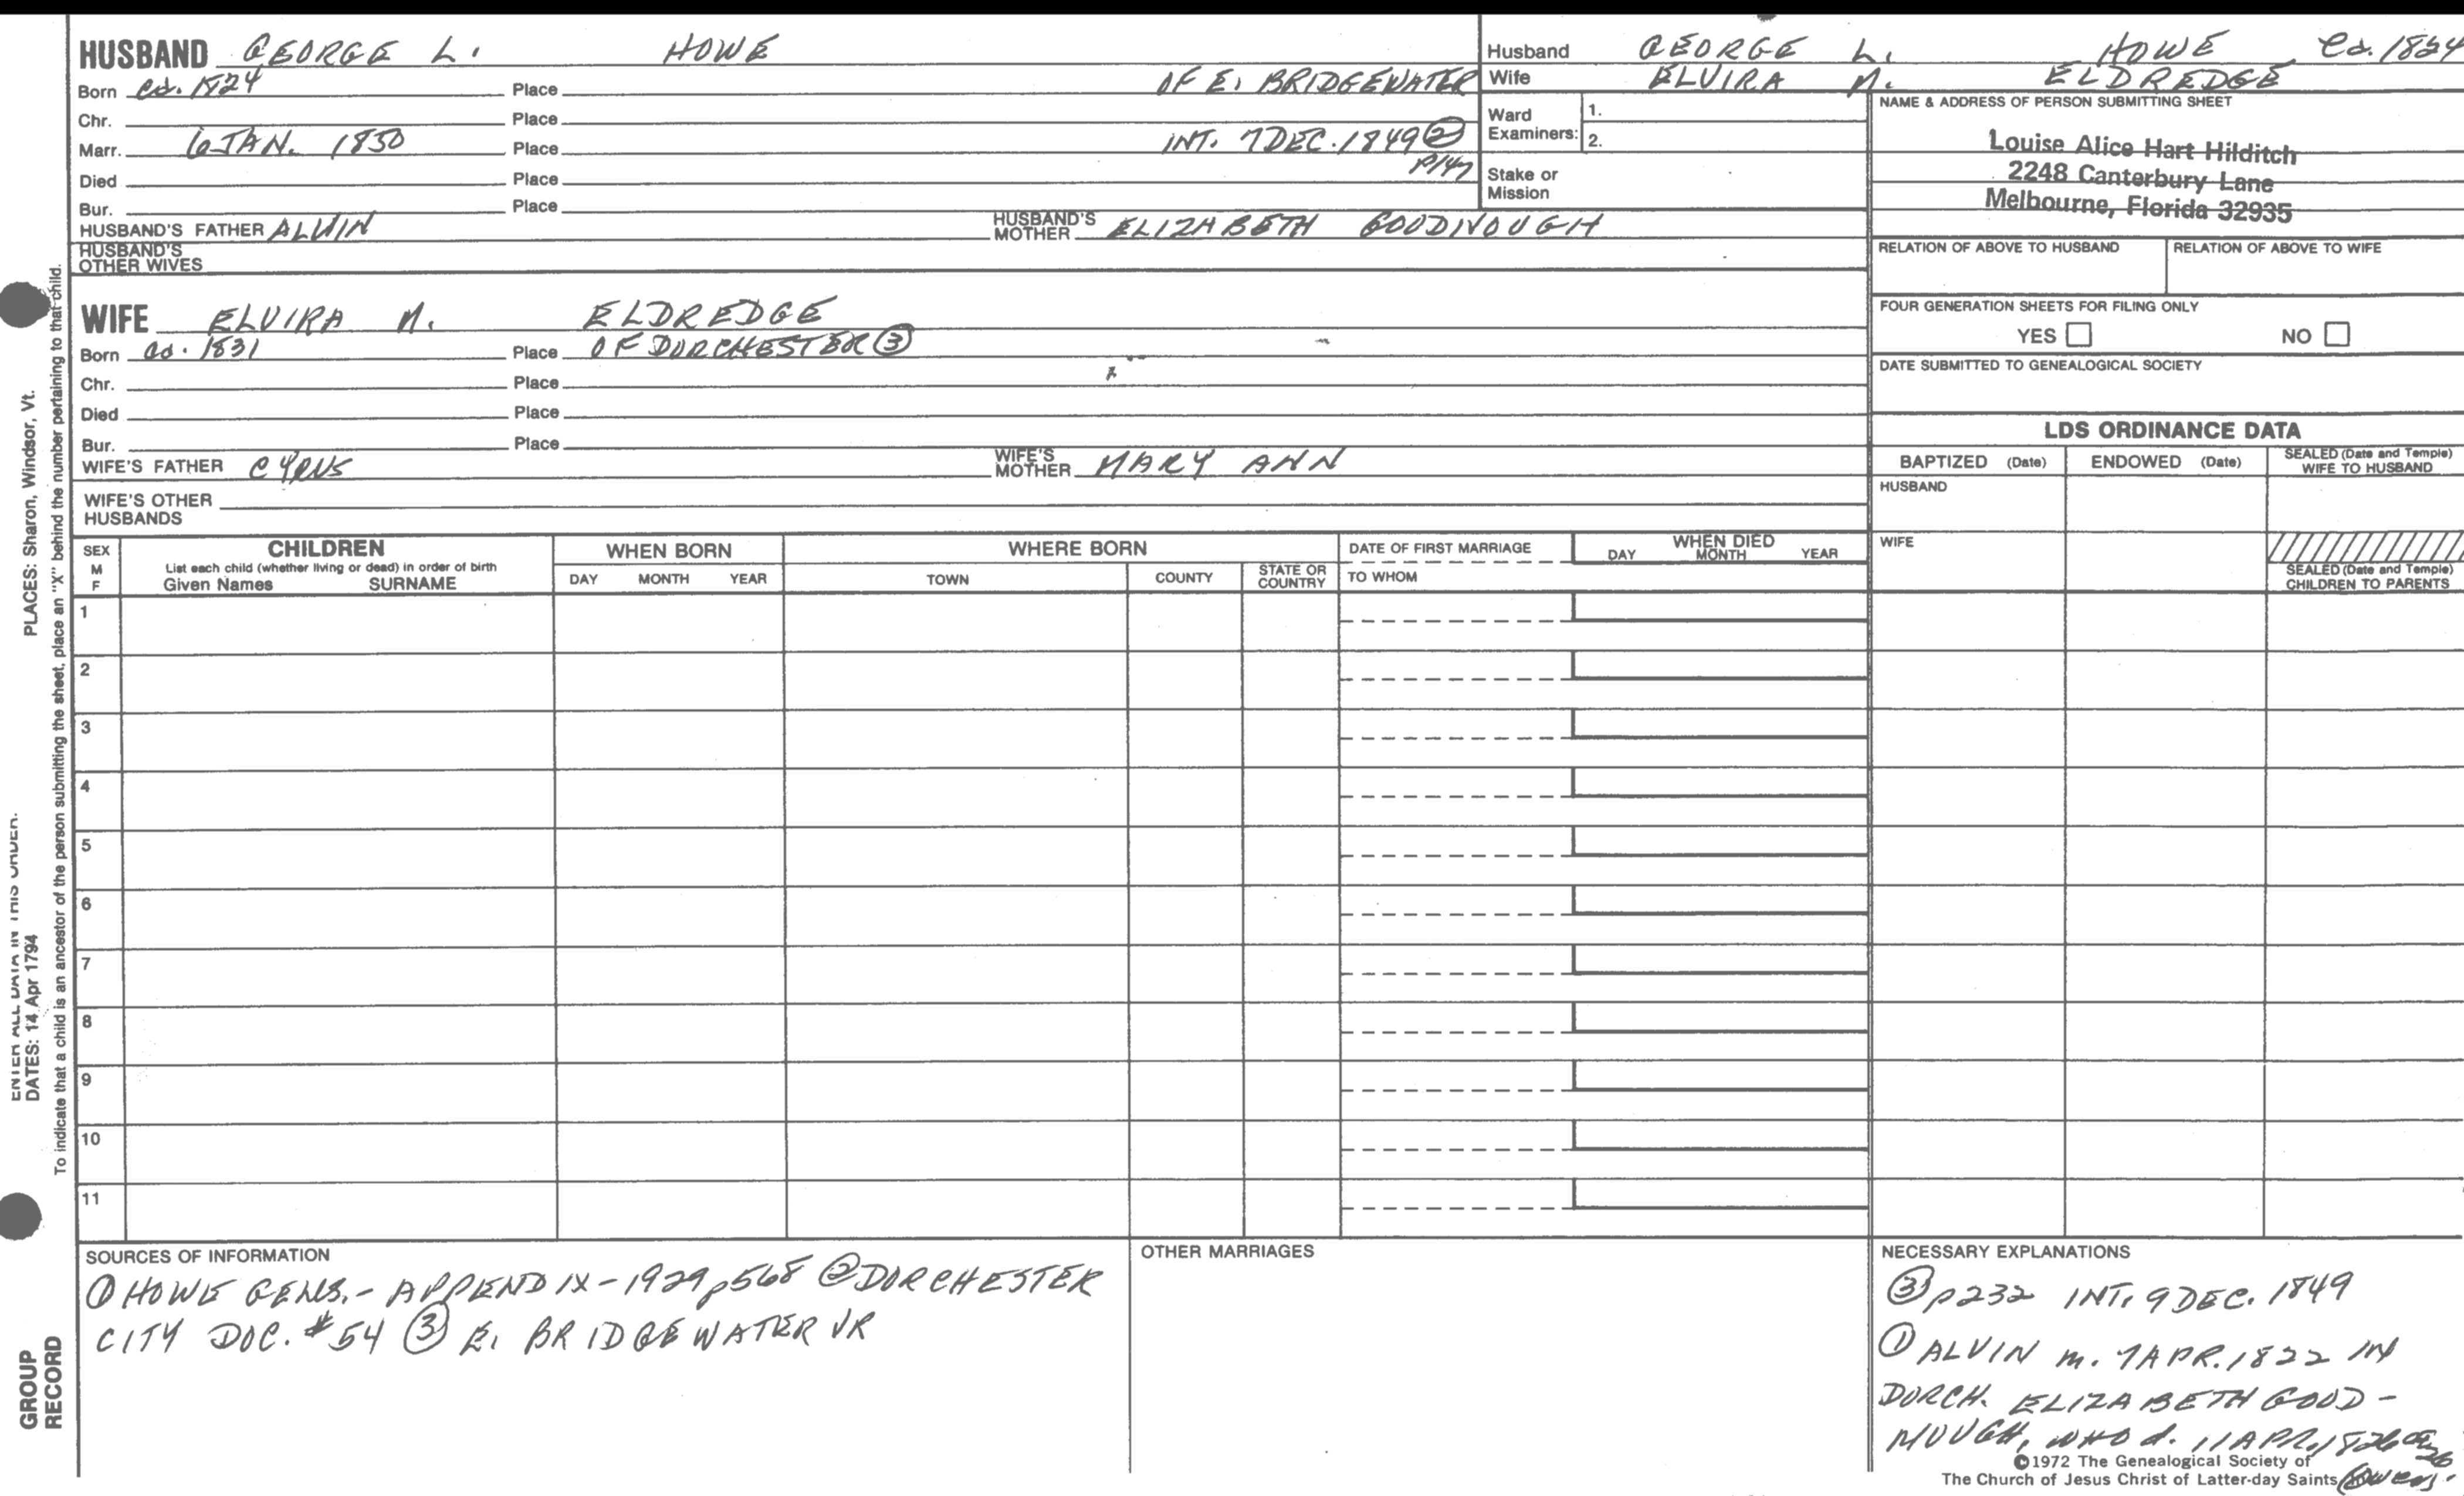 HUSBAND GEORGE L. HOWE
Born ca. 1824 Place OF E. BRIDGEWATER
Chr. Place
Marr. 6 JAN. 1850 Place INT. 7 DEC. 1849 ② p147
Died Place
Bur. Place
HUSBAND'S FATHER ALVIN HUSBAND'S MOTHER ELIZABETH GOODNOUGH
HUSBAND'S OTHER WIVES
WIFE ELVIRA M. ELDREDGE
Born ca. 1831 Place OF DORCHESTER ③
Chr. Place
Died Place
Bur. Place
WIFE'S FATHER CYRUS WIFE'S MOTHER MARY ANN
WIFE'S OTHER HUSBANDS
Husband GEORGE L. HOWE ca. 1824
Wife ELVIRA M. ELDREDGE
Ward Examiners: 1.
2.
Stake or Mission
NAME & ADDRESS OF PERSON SUBMITTING SHEET
Louise Alice Hart Hilditch
2248 Canterbury Lane
Melbourne, Florida 32935
RELATION OF ABOVE TO HUSBAND RELATION OF ABOVE TO WIFE
FOUR GENERATION SHEETS FOR FILING ONLY
YES NO
DATE SUBMITTED TO GENEALOGICAL SOCIETY
LDS ORDINANCE DATA
BAPTIZED (Date) ENDOWED (Date) SEALED (Date and Temple) WIFE TO HUSBAND
HUSBAND
WIFE
SEALED (Date and Temple) CHILDREN TO PARENTS
SEX M F
CHILDREN
List each child (whether living or dead) in order of birth
Given Names SURNAME
WHEN BORN
DAY MONTH YEAR
WHERE BORN
TOWN COUNTY STATE OR COUNTRY
DATE OF FIRST MARRIAGE
TO WHOM
WHEN DIED
DAY MONTH YEAR
1
2
3
4
5
6
7
8
9
10
11
SOURCES OF INFORMATION
① HOWE GENS. - APPENDIX - 1929 p568 ② DORCHESTER
CITY DOC. #54 ③ E. BRIDGEWATER VR
OTHER MARRIAGES
NECESSARY EXPLANATIONS
③ p232 INT. 9 DEC. 1849
① ALVIN m. 7 APR. 1822 IN
DORCH. ELIZABETH GOOD-
NOUGH, WHO d. 11 APR. 1826
©1972 The Genealogical Society of
The Church of Jesus Christ of Latter-day Saints
PLACES: Sharon, Windsor, Vt.
To indicate that a child is an ancestor of the person submitting the sheet, place an "X" behind the number pertaining to that child.
ENTER ALL DATA IN THIS ORDER.
DATES: 14 Apr 1794
GROUP RECORD